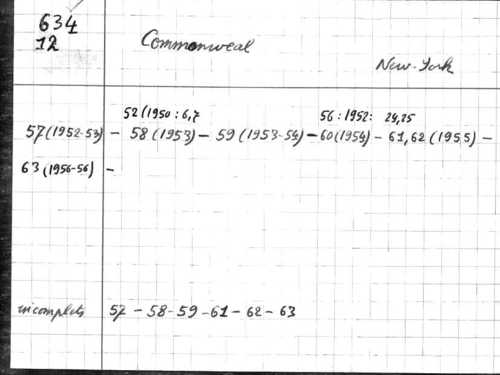 634
12
Commonweal
New-York
52(1950:6,7
56:1952: 24,25
57(1952-53) - 58(1953) - 59(1953-54) - 60(1954) - 61,62(1955) -
63(1956-56) -
incomplets 57 - 58 - 59 - 61 - 62 - 63